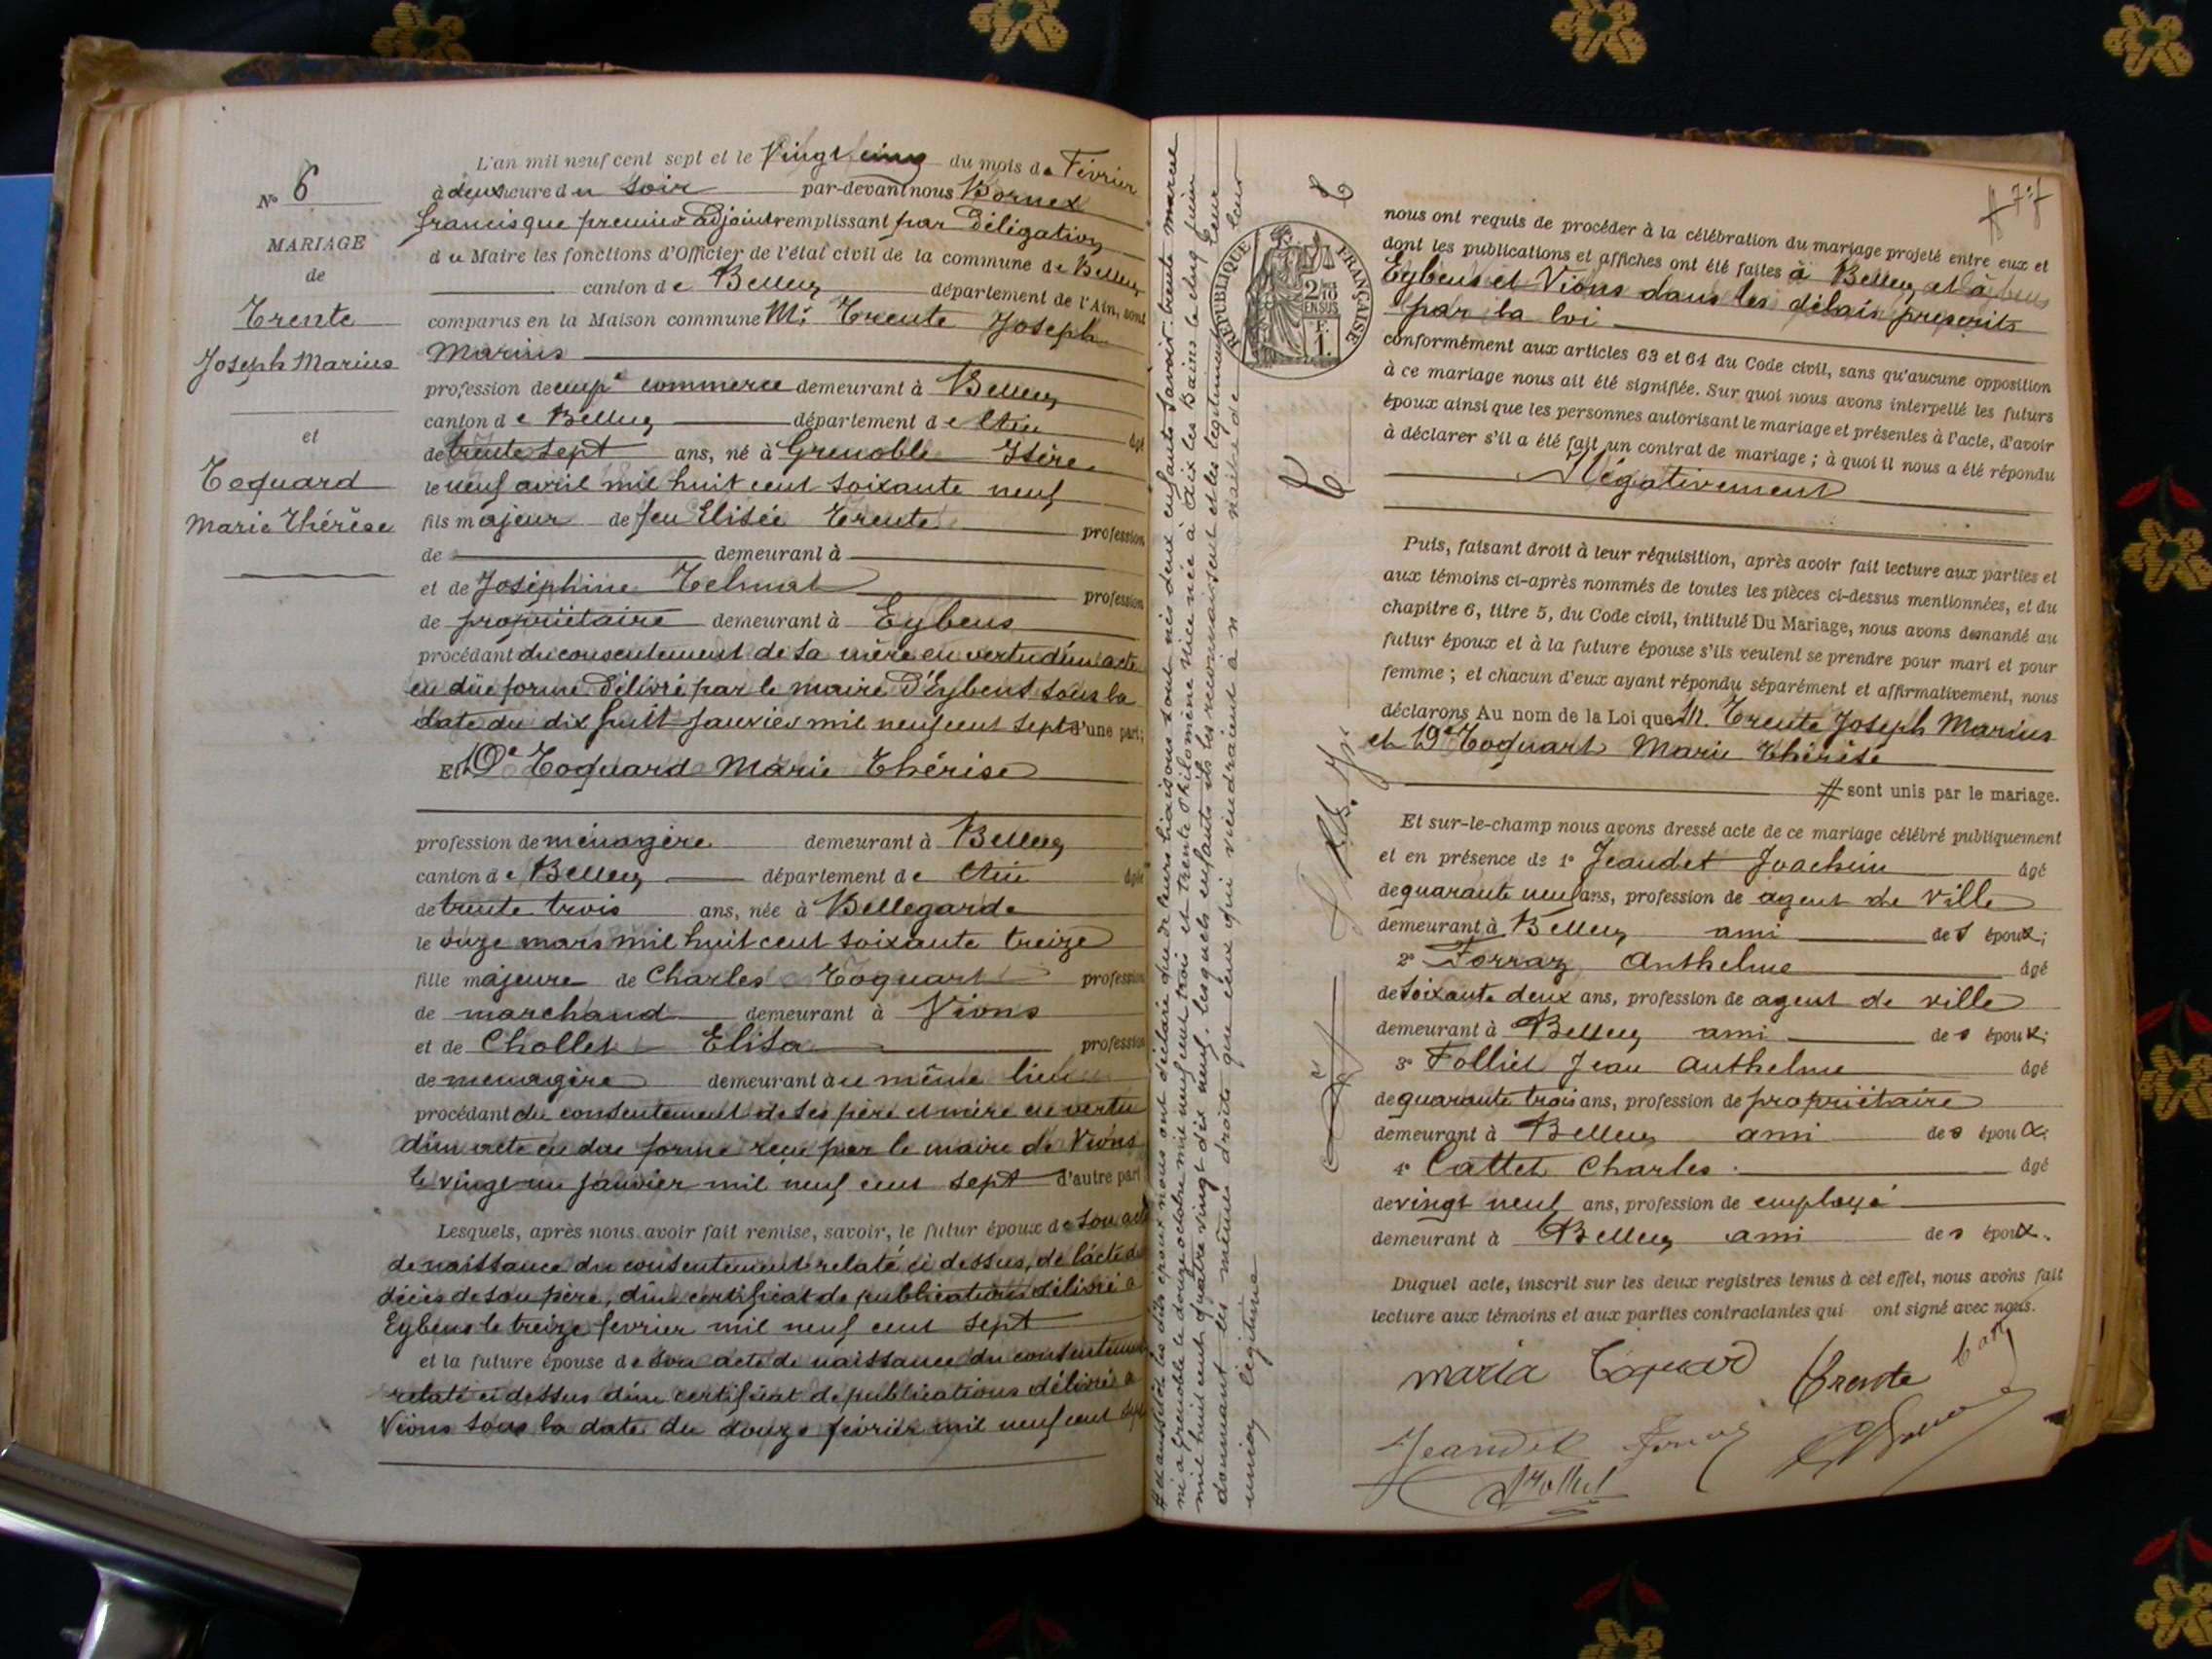 N° 6
MARIAGE
de
Trente
Joseph Marius
et
Toquard
Marie Thérèse
L'an mil neuf cent sept et le Vingt cinq du mois de Février
à deux heure du Soir par-devant nous Bornex
francisque premier Adjoint remplissant par Délégation
du Maire les fonctions d'Officier de l'état civil de la commune de Belley
canton de Belley département de l'Ain, sont
comparus en la Maison commune Mr Trente Joseph
Marius
profession de empé commerce demeurant à Belley
canton de Belley département de l'Ain âgé
de trente sept ans, né à Grenoble Isère
le neuf avril mil huit cent soixante neuf
fils majeur de feu Elisée Trente profession
de demeurant à
et de Joséphine Telmat profession
de propriétaire demeurant à Eybens
procédant du consentement de sa mère en vertu d'un acte
en düe forme délivré par le maire d'Eybens sous la
date du dix huit Janvier mil neuf cent sept d'une part;
Et De Toquard Marie Thérèse
profession de ménagère demeurant à Belley
canton de Belley département de l'Ain âgée
de trente trois ans, née à Bellegarde
le onze mars mil huit cent soixante treize
fille majeure de Charles Toquart profession
de marchand demeurant à Vions
et de Chollet Elisa profession
de menagère demeurant au même lieu
procédant du consentement de ses père et mère en vertu
d'un acte en due forme reçu par le maire de Vions
le vingt un Janvier mil neuf cent sept d'autre part
Lesquels, après nous avoir fait remise, savoir, le futur époux de son acte
de naissance du consentement relaté ci dessus, de l'acte de
décès de son père, d'un certificat de publications délivré à
Eybens le treize fevrier mil neuf cent sept
et la future épouse de son acte de naissance du consentement
relaté ci dessus d'un certificat de publications délivré à
Vions sous la date du douze février mil neuf cent sept
# et aussitôt les dits époux nous ont déclaré que de leurs liaisons sont nés deux enfants savoir: trente marcel
né à Grenoble le douze octobre mil neuf cent trois et trente Philomène Nice née à Aix les Bains le cinq juin
mil huit cent quatre vingt dix neuf. lesquels enfants ils les reconnaissent et les légitiment leur
donnant les mêmes droits que ceux qui viendraient à naître de leur
union légitime
RÉPUBLIQUE FRANÇAISE
2/10
EN SUS
F.
1.
nous ont requis de procéder à la célébration du mariage projeté entre eux et
dont les publications et affiches ont été faites à Belley et à
Eybens et Vions dans les délais prescrits
par la loi
conformément aux articles 63 et 64 du Code civil, sans qu'aucune opposition
à ce mariage nous ait été signifiée. Sur quoi nous avons interpellé les futurs
époux ainsi que les personnes autorisant le mariage et présentes à l'acte, d'avoir
à déclarer s'il a été fait un contrat de mariage ; à quoi il nous a été répondu
Négativement
Puis, faisant droit à leur réquisition, après avoir fait lecture aux parties et
aux témoins ci-après nommés de toutes les pièces ci-dessus mentionnées, et du
chapitre 6, titre 5, du Code civil, intitulé Du Mariage, nous avons demandé au
futur époux et à la future épouse s'ils veulent se prendre pour mari et pour
femme ; et chacun d'eux ayant répondu séparément et affirmativement, nous
déclarons Au nom de la Loi que M. Trente Joseph Marius
et De Toquart Marie Thérèse
# sont unis par le mariage.
Et sur-le-champ nous avons dressé acte de ce mariage célébré publiquement
et en présence de 1° Jeandet Joachim âgé
de quarante neuf ans, profession de agent de ville
demeurant à Belley ami des époux;
2° Forraz Anthelme âgé
de soixante deux ans, profession de agent de ville
demeurant à Belley ami des époux;
3° Folliet Jean Anthelme âgé
de quarante trois ans, profession de propriétaire
demeurant à Belley ami des époux;
4° Cattet Charles âgé
de vingt neuf ans, profession de employé
demeurant à Belley ami des époux.
Duquel acte, inscrit sur les deux registres tenus à cet effet, nous avons fait
lecture aux témoins et aux parties contractantes qui ont signé avec nous.
maria Toquard Trente
Jeandet